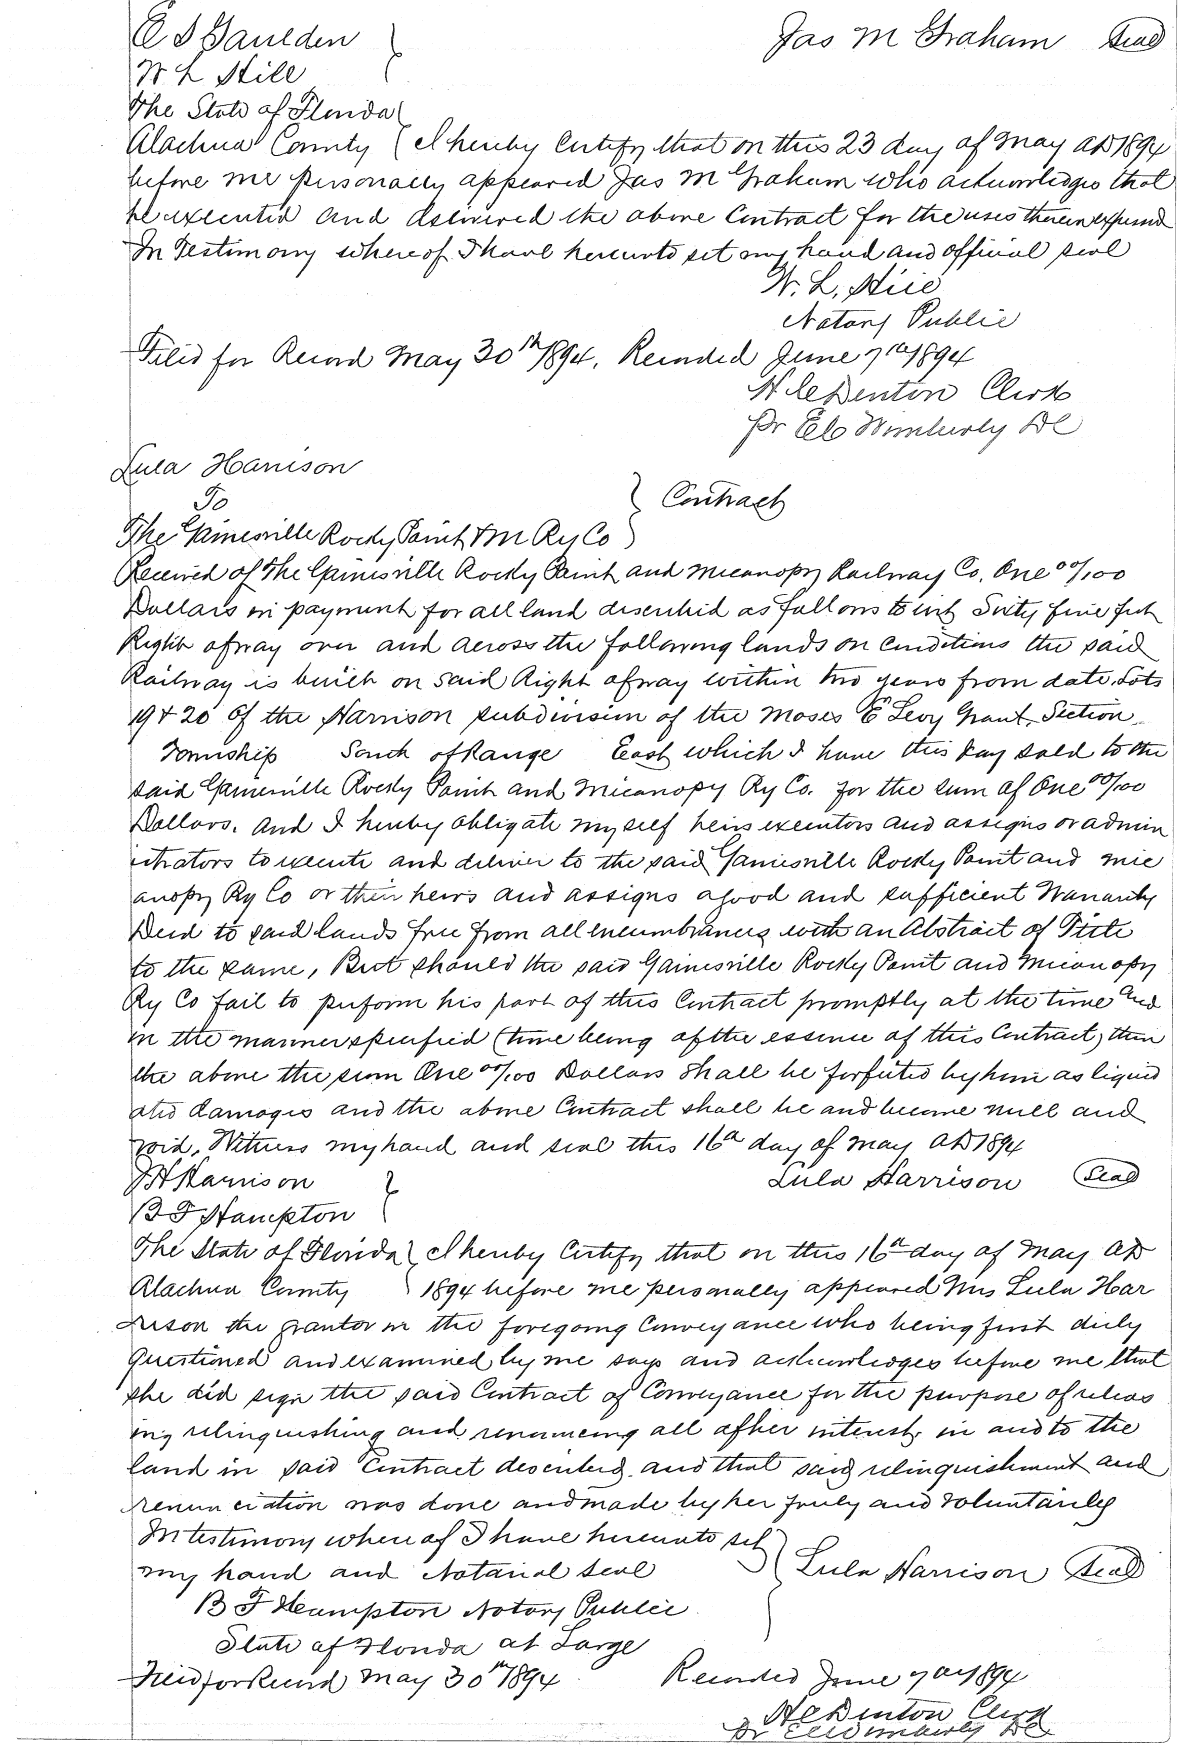 E S Gaulden
Jas M Graham Seal
W L Hill
The State of Florida
Alachua County I hereby Certify that on this 23 day of May AD 1894
before me personally appeared Jas M Graham who acknowledges that
he executed and delivered the above Contract for the uses therein expressed
In Testimony whereof I have hereunto set my hand and official seal
W. L. Hill
Notary Public
Filed for Record May 30th 1894. Recorded June 7th 1894
H C Denton Clerk
Pr E C Wimberly DC
Lula Harrison
To
Contract
The Gainesville Rocky Point & M Ry Co
Received of The Gainesville Rocky Point and Micanopy Railway Co. One 00/100
Dollars in payment for all land described as follows to wit Sixty five feet
Right of way over and across the following lands on conditions the said
Railway is built on said Right of way within two years from date. Lots
19 & 20 Of the Harrison subdivision of the Moses E Levy Grant. Section
Township South of Range East which I have this day sold to the
said Gainesville Rocky Point and Micanopy Ry Co. for the sum of One 00/100
Dollars. And I hereby obligate myself heirs executors and assigns or admin
istrators to execute and deliver to the said Gainesville Rocky Point and Mic
anopy Ry Co or their heirs and assigns a good and sufficient Warranty
Deed to said lands free from all encumbrances with an Abstract of Title
to the same, But should the said Gainesville Rocky Point and Micanopy
Ry Co fail to perform his part of this Contract promptly at the time and
in the manner specified (time being of the essence of this Contract) then
the above the sum One 00/100 Dollars shall be forfeited by him as liquid
ated damages and the above Contract shall be and become null and
void. Witness my hand and seal this 16th day of May AD 1894
J H Harrison
Lula Harrison Seal
B F Hampton
The State of Florida I hereby Certify that on this 16th day of May AD
Alachua County 1894 before me personally appeared Mrs Lula Har
rison the grantor in the foregoing Conveyance who being first duly
Questioned and examined by me says and acknowledges before me that
she did sign the said Contract of Conveyance for the purpose of releas
ing relinquishing and renouncing all of her interest in and to the
land in said Contract described and that said relinquishment and
renunciation was done and made by her freely and voluntarily
In testimony where of I have hereunto set
my hand and Notarial Seal
Lula Harrison Seal
B F Hampton Notary Public
State of Florida at Large
Filed for Record May 30th 1894
Recorded June 7th 1894
H C Denton Clerk
Pr E C Wimberly DC